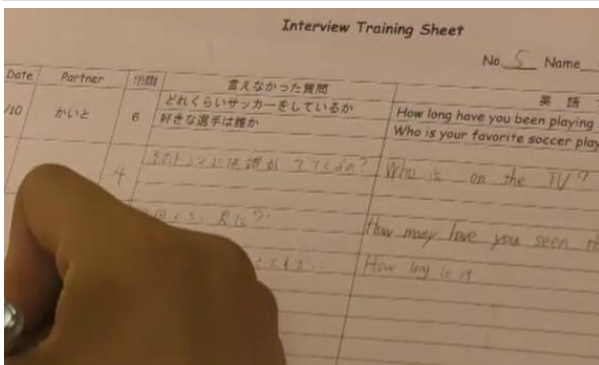 Interview Training Sheet
No. 5 Name
Date Partner 言えなかった質問 英語
/10 かいと 6 どれくらいサッカーをしているか How long have you been playing
好きな選手は誰か Who is your favorite soccer play
4 Who is on the TV?
How many have you seen th
How long is it